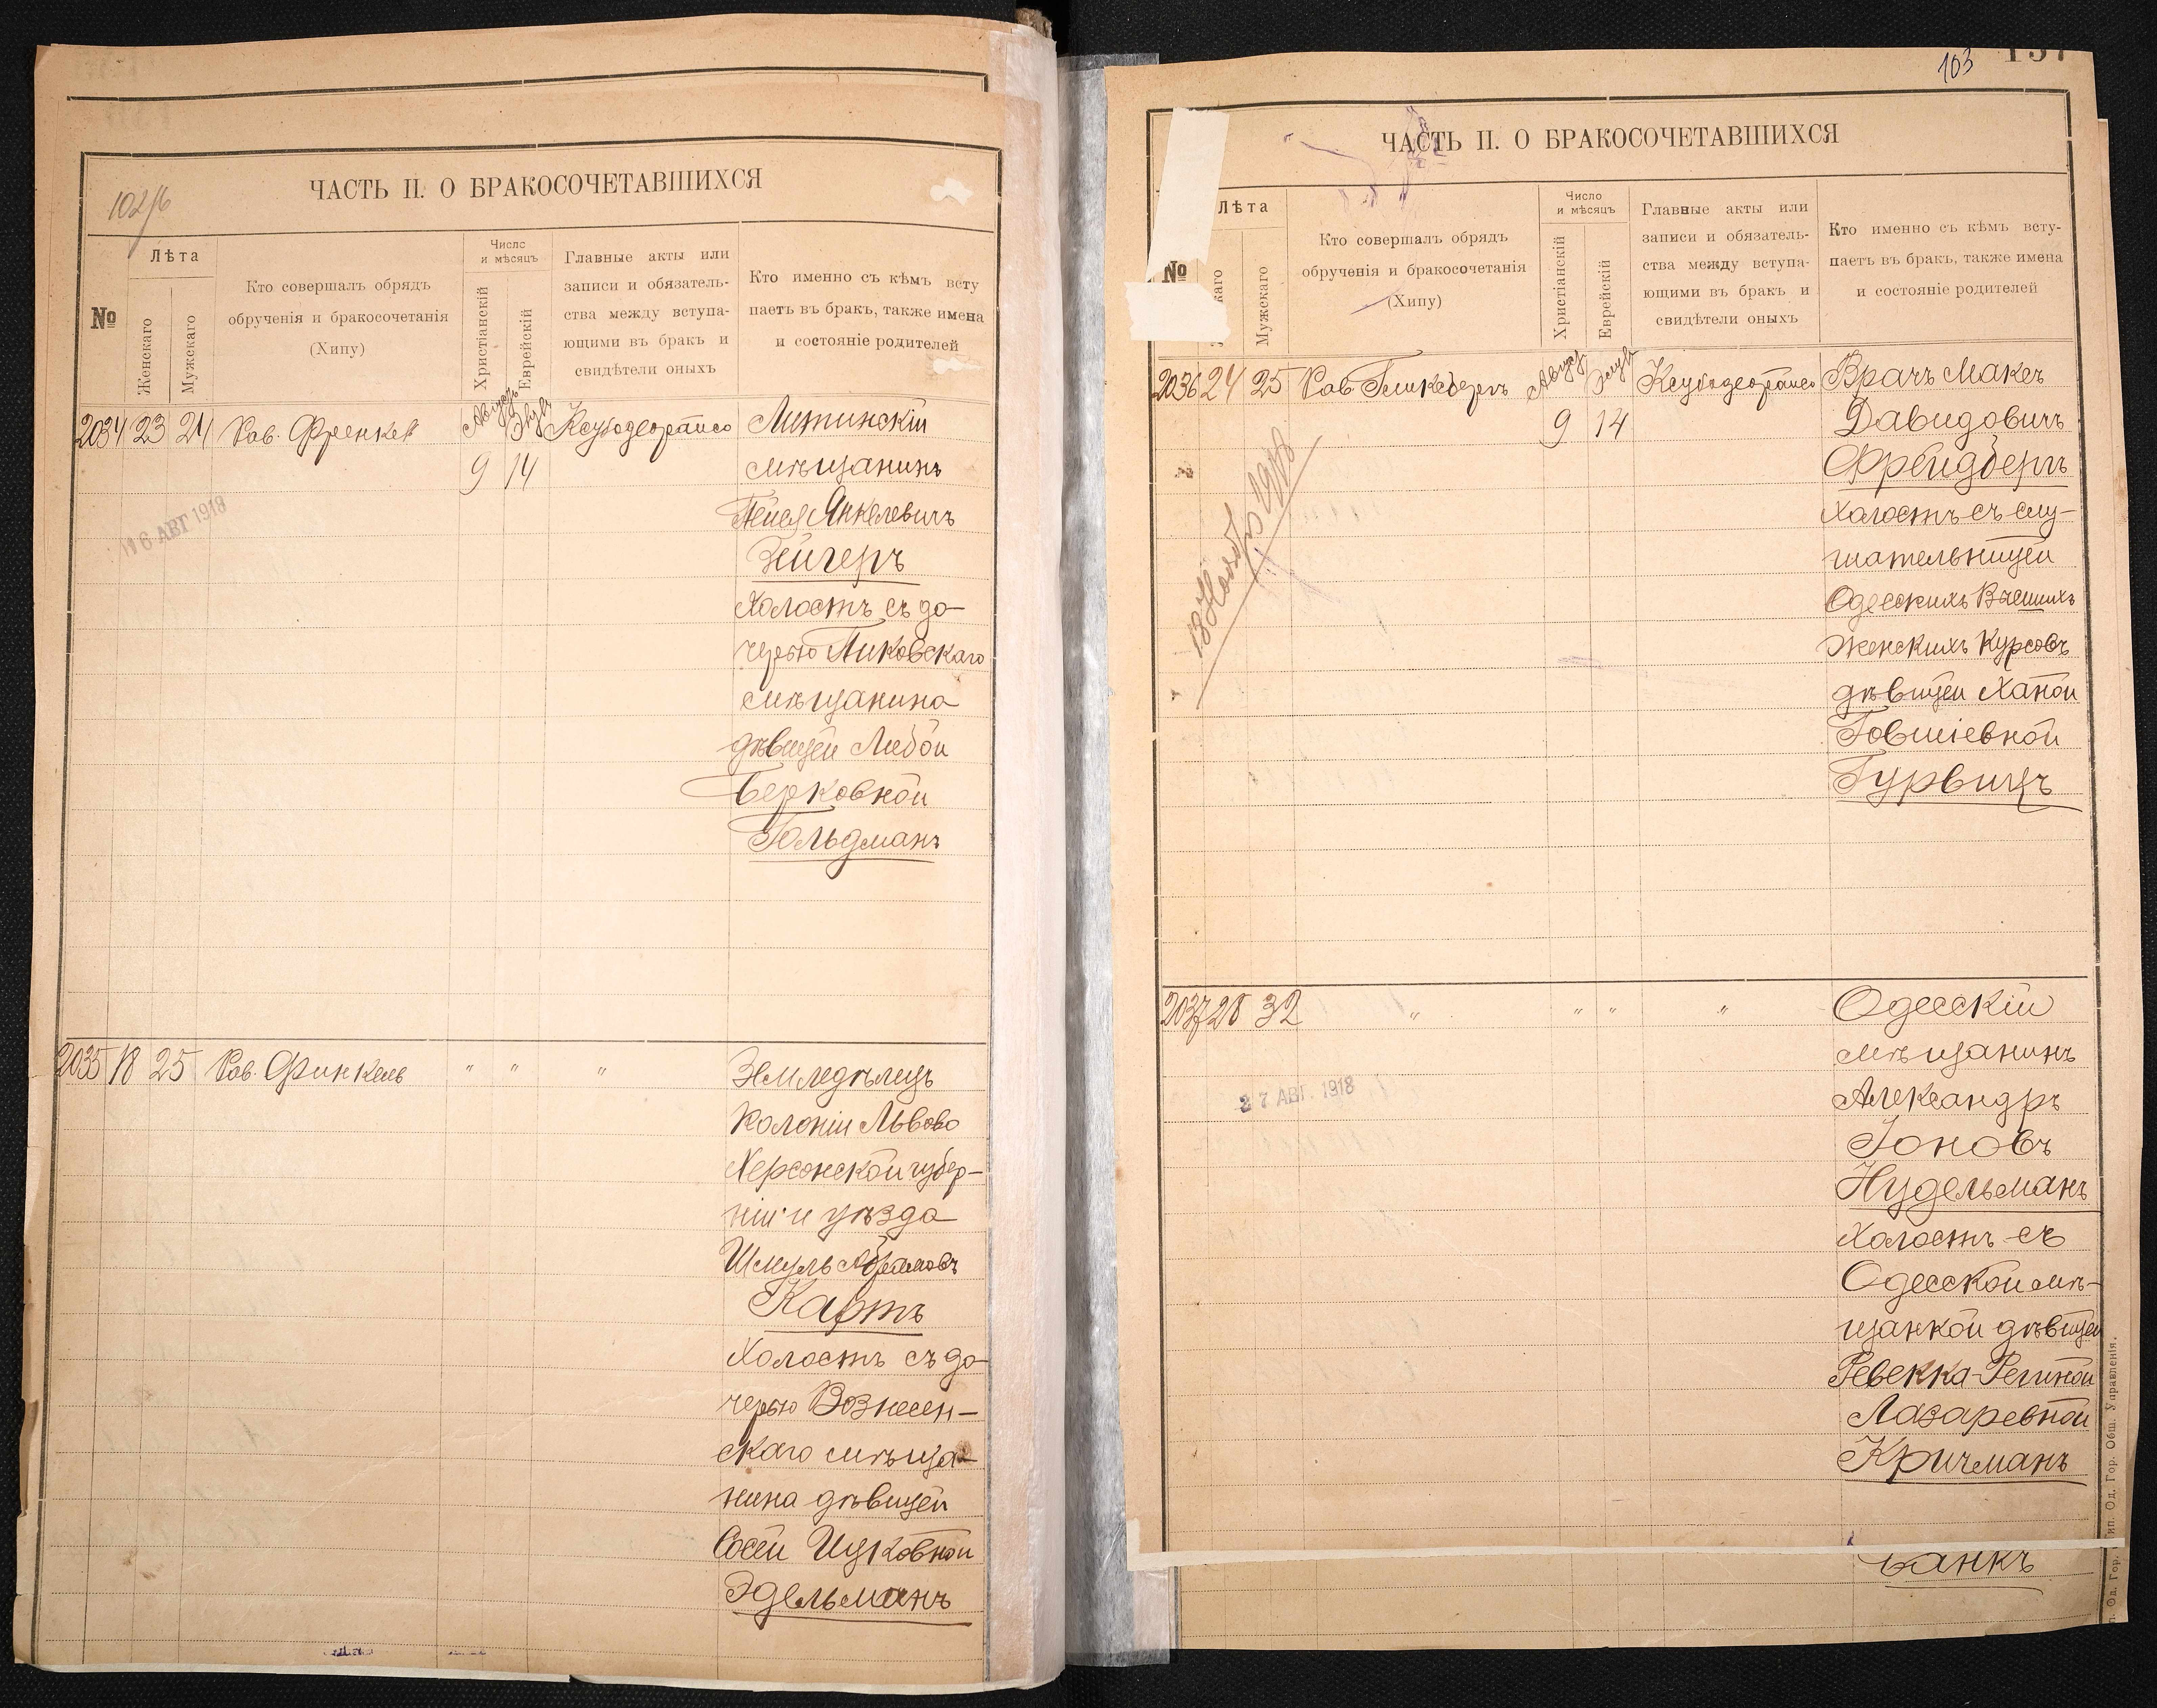 102/б
ЧАСТЬ II. О БРАКОСОЧЕТАВШИХСЯ
№
Лѣта
Женскаго
Мужскаго
Кто совершалъ обрядъ
обрученія и бракосочетанія
(Хипу)
Число
и мѣсяцъ
Христіанскій
Еврейскій
Главные акты или
записи и обязатель-
ства между вступа-
ющими въ бракъ и
свидѣтели оныхъ
Кто именно съ кѣмъ всту
паетъ въ бракъ, также имена
и состояніе родителей
2034 23 24 Рав. Френкель Августъ 9 14
Литинскій
мѣщанинъ
Пейся Янкелевичъ
Зейгеръ
холостъ съ до-
черью Пиковскаго
мѣщанина
дѣвицей Либой
Берковной
Гольдманъ
16 АВГ 1918
2035 18 25 Рав. Финкель " " "
Земледѣлецъ
колоніи Львово
Херсонской губер-
ніи и уѣзда
Шмуль Абрамовъ
Картъ
холостъ съ до-
черью Вознесен-
скаго мѣща-
нина дѣвицей
Сосей Ицковной
Эдельманъ
103 137
ЧАСТЬ II. О БРАКОСОЧЕТАВШИХСЯ
№
Лѣта
каго
Мужскаго
Кто совершалъ обрядъ
обрученія и бракосочетанія
(Хипу)
Число
и мѣсяцъ
Христіанскій
Еврейскій
Главные акты или
записи и обязатель-
ства между вступа-
ющими въ бракъ и
свидѣтели оныхъ
Кто именно съ кѣмъ всту-
паетъ въ бракъ, также имена
и состояніе родителей
2036 24 25 Рав Гликсбергъ Августъ 9 14
Врачъ Максъ
Давидовичъ
Фрейдбергъ
холостъ съ слу-
шательницей
Одесскихъ Высшихъ
Женскихъ Курсовъ
дѣвицей Ханой
Говшіевной
Гурвицъ
2037 28 32 " " " "
Одесскій
мѣщанинъ
Александръ
Іоновъ
Нудельманъ
холостъ съ
Одесской мѣ-
щанкой дѣвицей
Ревекка-Региной
Лазаревной
Кричманъ
27 АВГ. 1918
Тип. Од. Гор. Общ. Управленія.